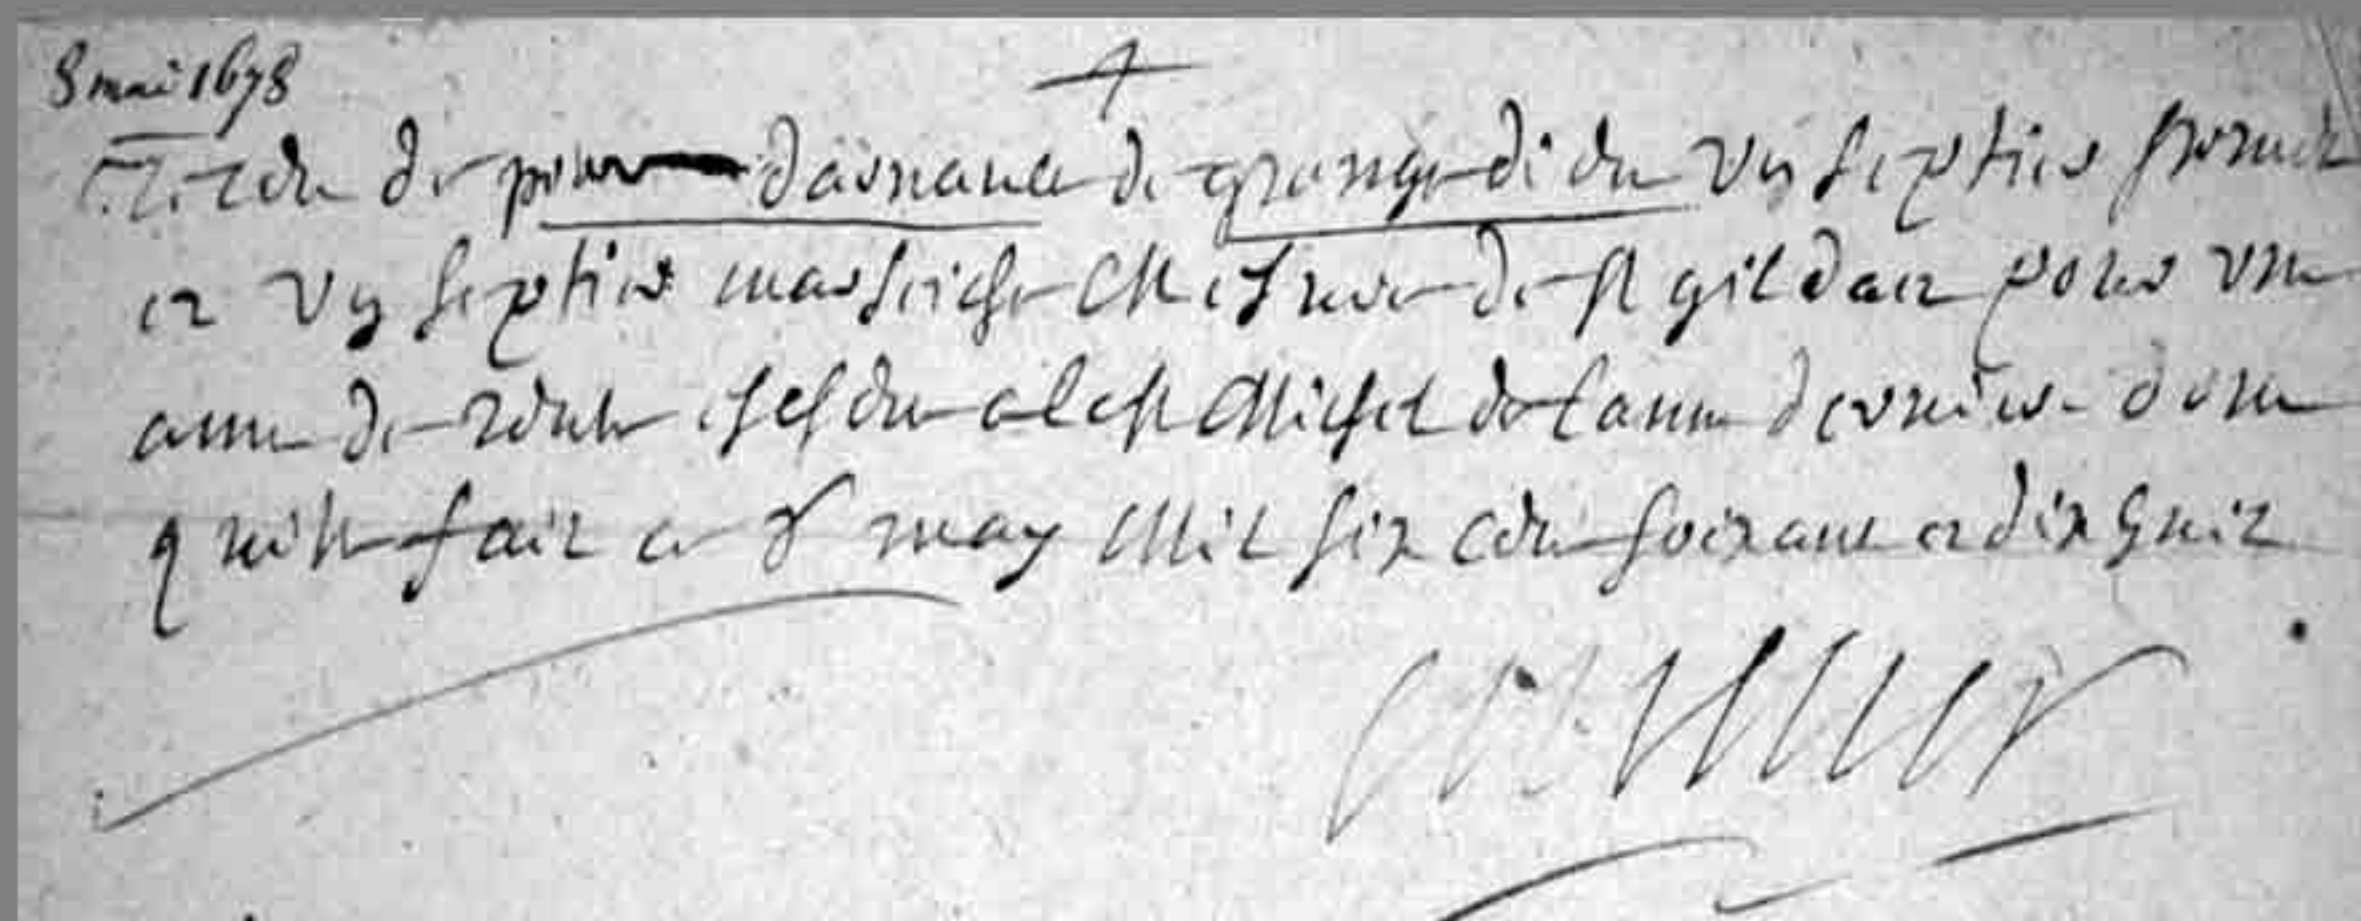 8 mai 1678
de pierre davenance de grangedidu vy septiers froment
et vy septiers marseiche Mesure de st gildaez pour une
annee de rente eschedue a la st Michel de l'annee derniere dont
quitte fait ce 8 may Mil six cent soixante et dix huit